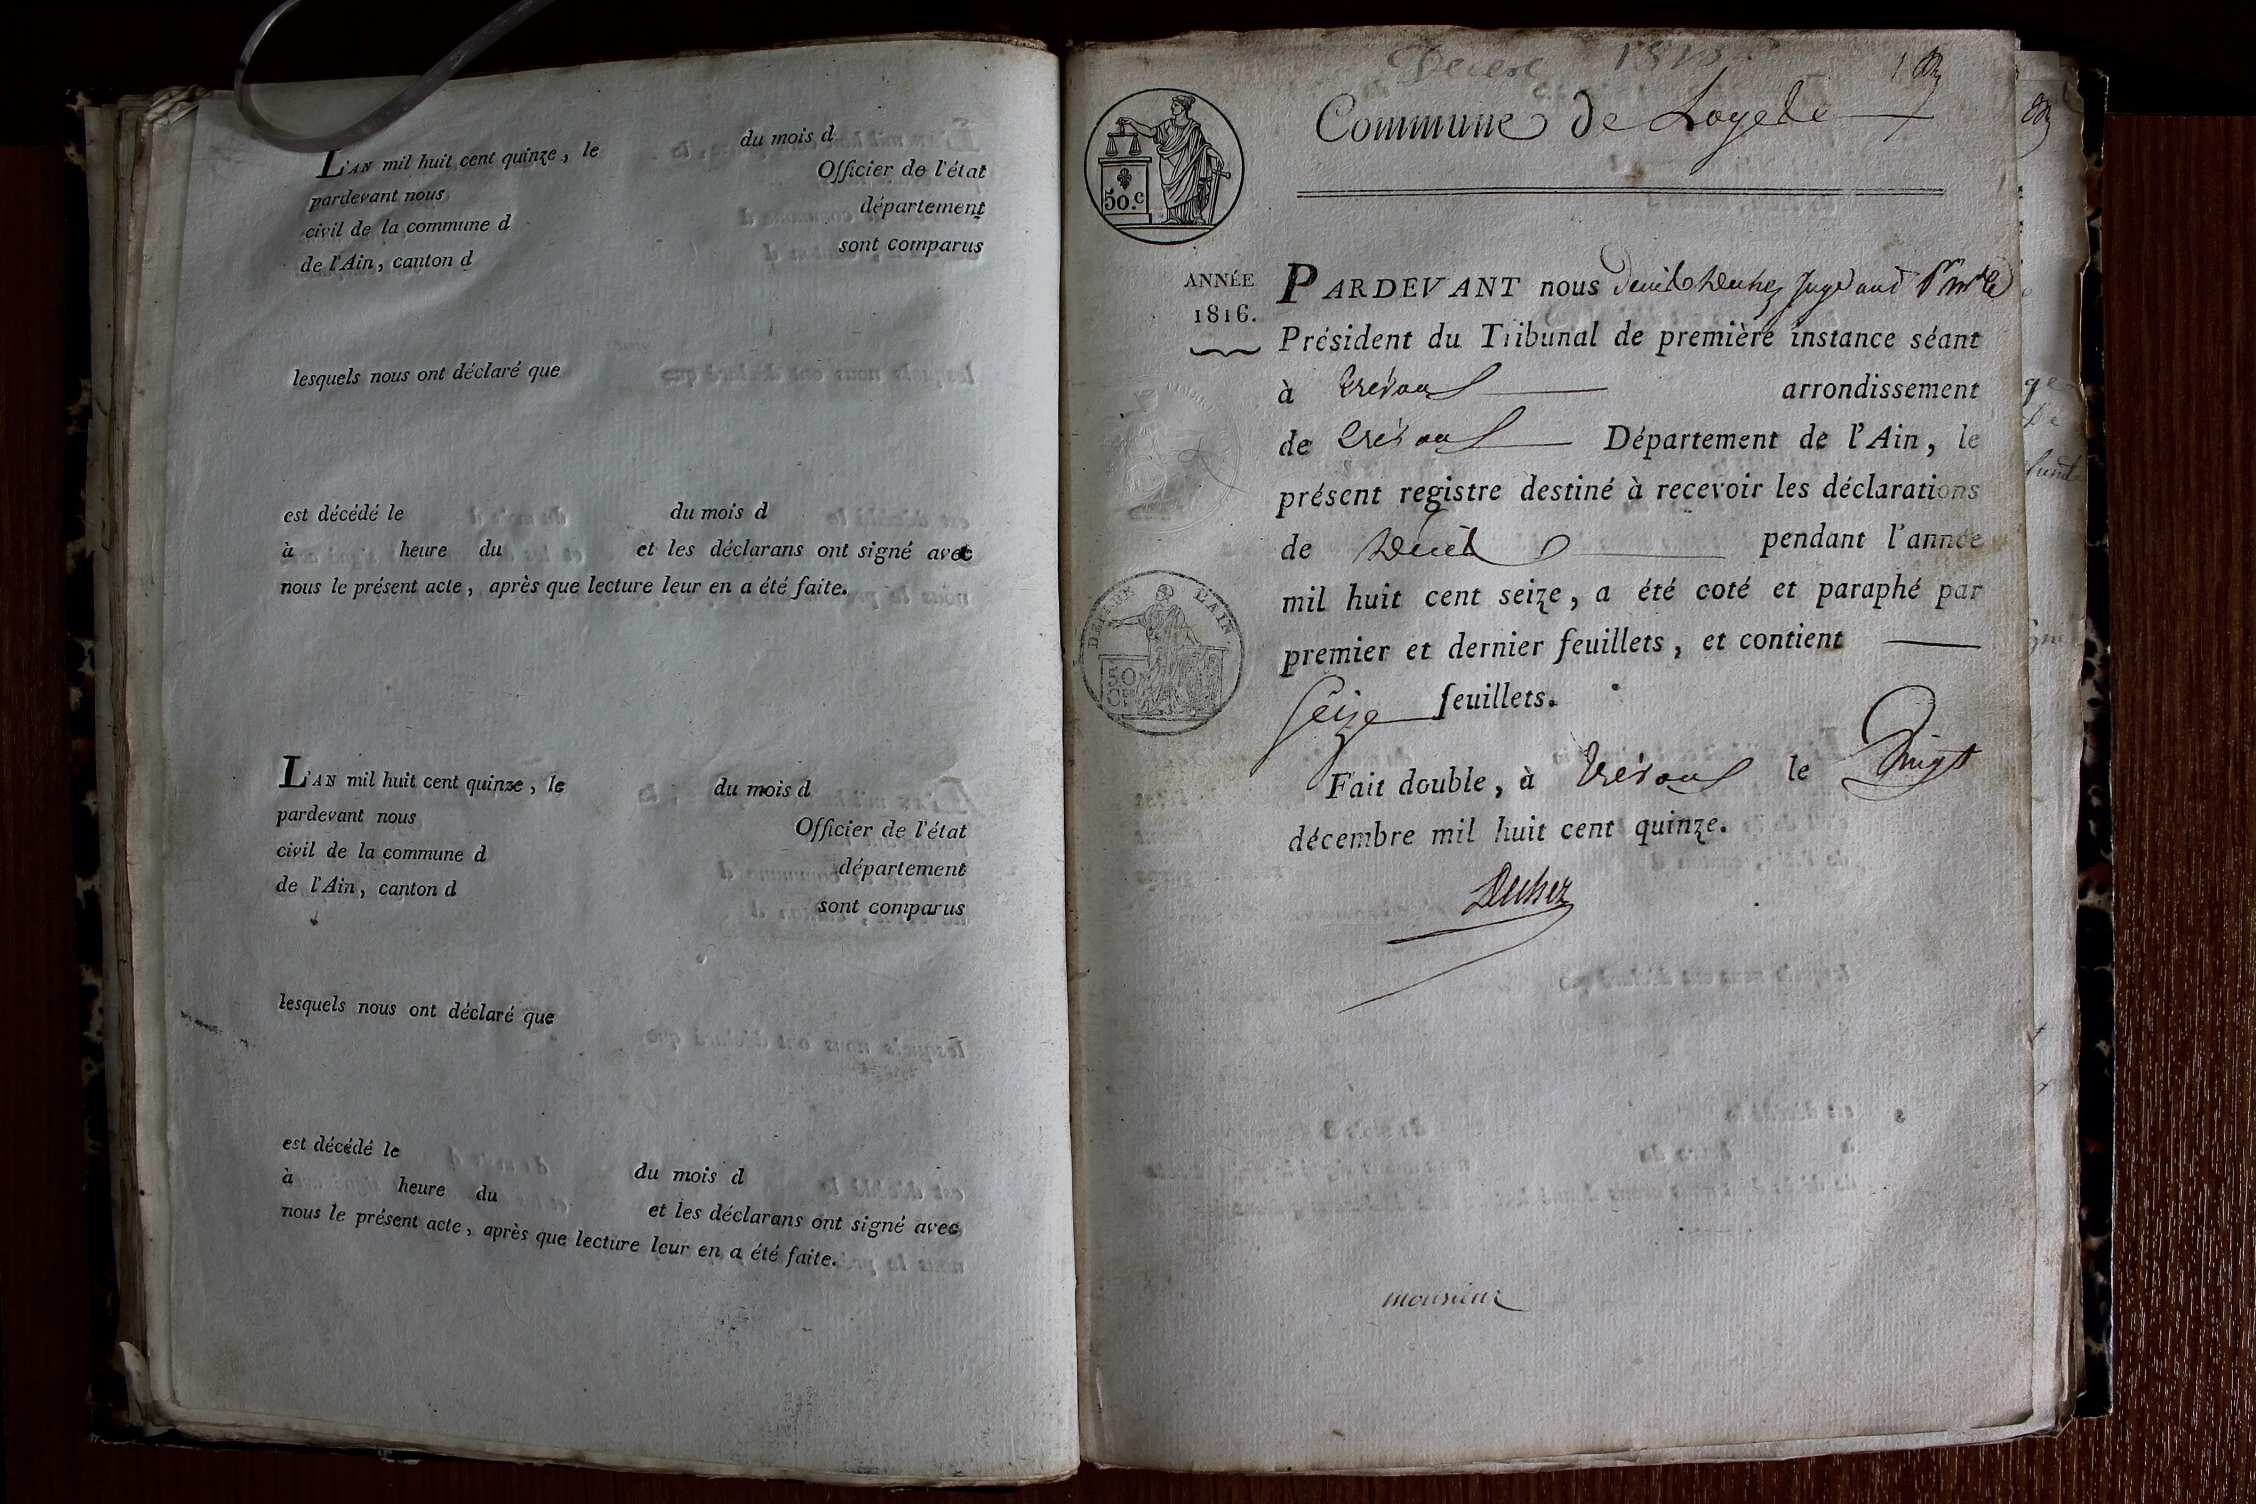 L'AN mil huit cent quinze, le du mois d
pardevant nous Officier de l'état
civil de la commune d département
de l'Ain, canton d sont comparus
lesquels nous ont déclaré que
est décédé le du mois d
à heure du et les déclarans ont signé avec
nous le présent acte, après que lecture leur en a été faite.
L'AN mil huit cent quinze, le du mois d
pardevant nous Officier de l'état
civil de la commune d département
de l'Ain, canton d sont comparus
lesquels nous ont déclaré que
est décédé le du mois d
à heure du et les déclarans ont signé avec
nous le présent acte, après que lecture leur en a été faite.
1
Commune de
50.c
ANNÉE
1816.
PARDEVANT nous
Président du Tribunal de première instance séant
à Trévoux arrondissement
de Trévoux Département de l'Ain, le
présent registre destiné à recevoir les déclarations
de Décès pendant l'année
mil huit cent seize, a été coté et paraphé par
premier et dernier feuillets, et contient
Seize feuillets.
DE L'AIN
50
Fait double, à Trévoux le Vingt
décembre mil huit cent quinze.